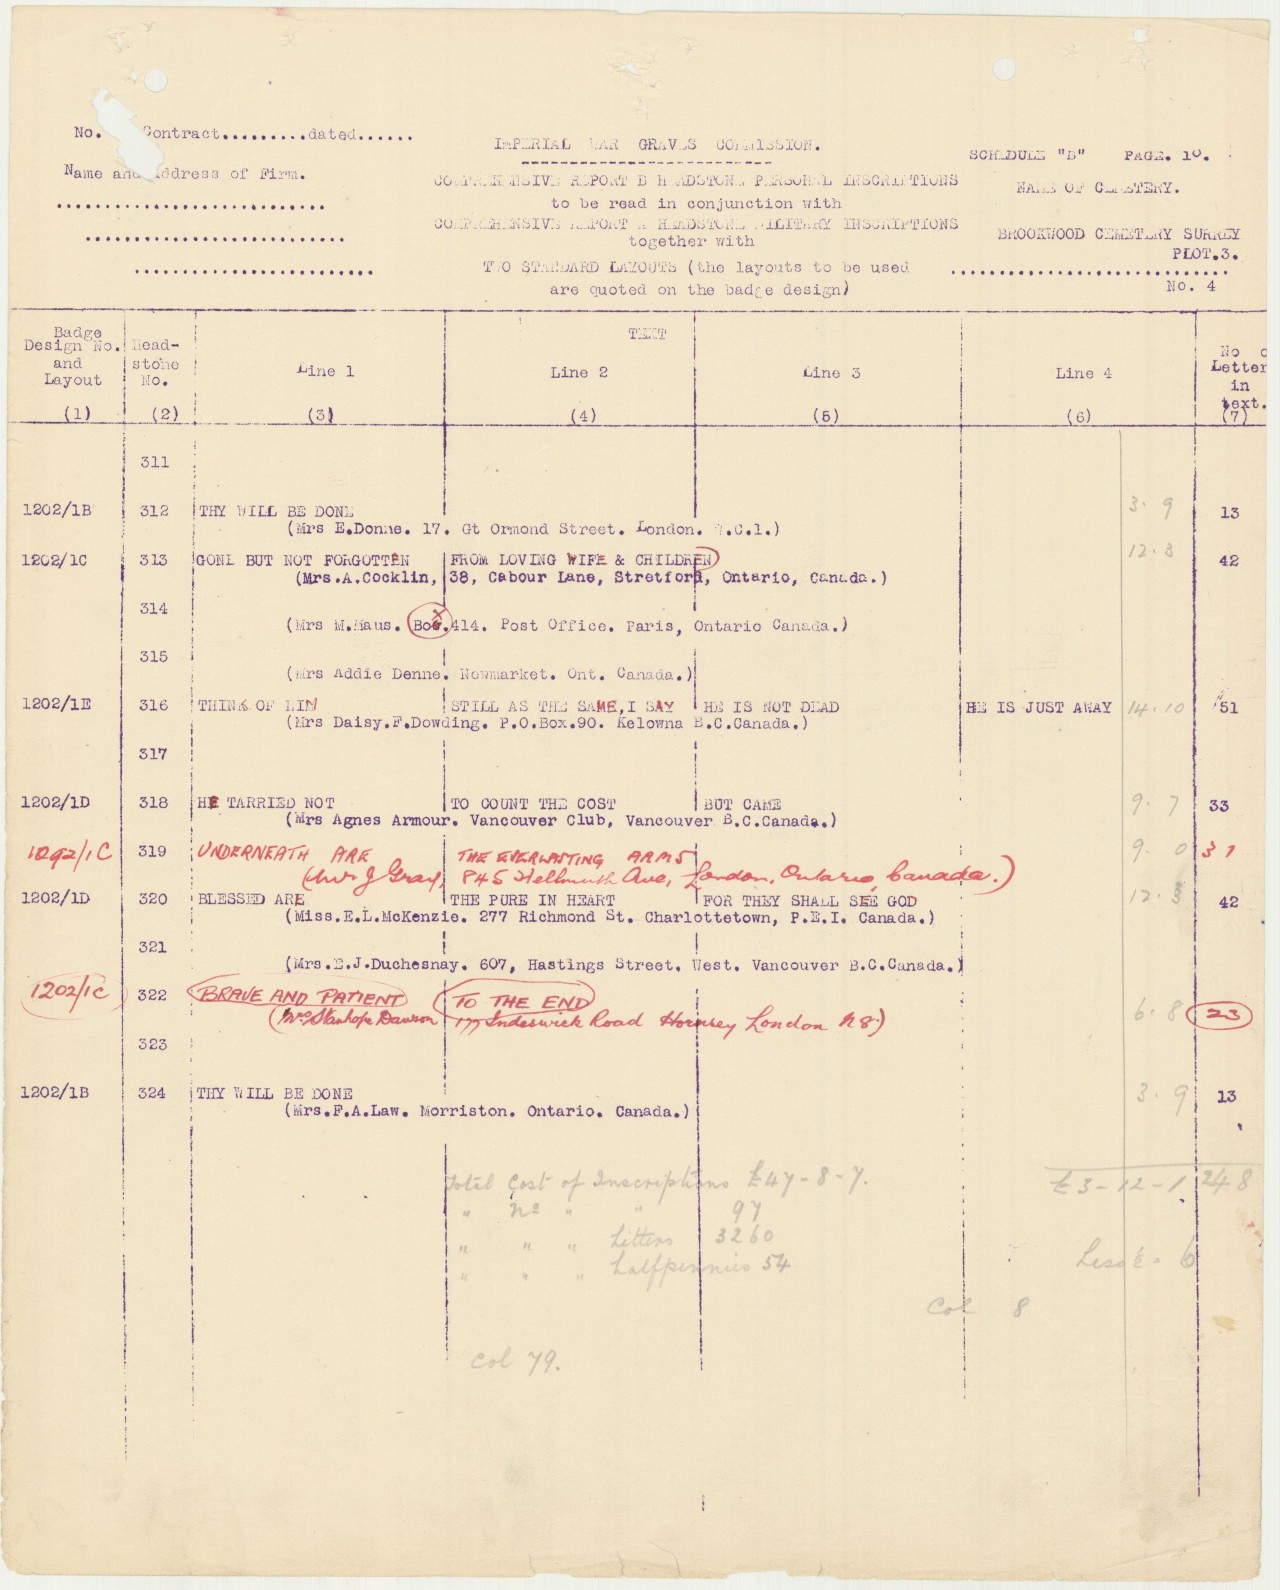 No. Contract.........dated......
IMPERIAL WAR GRAVES COMMISSION.
SCHEDULE "B" PAGE. 10.
Name and Address of Firm.
COMPREHENSIVE REPORT B HEADSTONE PERSONAL INSCRIPTIONS
NAME OF CEMETERY.
to be read in conjunction with
COMPREHENSIVE REPORT A HEADSTONE MILITARY INSCRIPTIONS
BROOKWOOD CEMETERY SURREY
together with
PLOT.3.
TWO STANDARD LAYOUTS (the layouts to be used
are quoted on the badge design)
No. 4
Badge Design No. and Layout
Head-stone No.
TEXT
Line 1 Line 2 Line 3 Line 4
No o Letter in text.
(1) (2) (3) (4) (5) (6) (7)
311
1202/1B 312 THY WILL BE DONE 3. 9 13
(Mrs E.Donne. 17. Gt Ormond Street. London. W.C.1.)
1202/1C 313 GONE BUT NOT FORGOTTEN FROM LOVING WIFE & CHILDREN 12.3 42
(Mrs.A.Cocklin, 38, Cabour Lane, Stretford, Ontario, Canada.)
314
(Mrs M.Haus. Box.414. Post Office. Paris, Ontario Canada.)
315
(Mrs Addie Denne. Newmarket. Ont. Canada.)
1202/1E 316 THINK OF HIM STILL AS THE SAME,I SAY HE IS NOT DEAD HE IS JUST AWAY 14.10 51
(Mrs Daisy.F.Dowding. P.O.Box.90. Kelowna B.C.Canada.)
317
1202/1D 318 HE TARRIED NOT TO COUNT THE COST BUT CAME 9. 7 33
(Mrs Agnes Armour. Vancouver Club, Vancouver B.C.Canada.)
1292/1C 319 UNDERNEATH ARE THE EVERLASTING ARMS 9. 0 31
(Mrs J Gray, 845 Hellmuth Ave, London, Ontario, Canada.)
1202/1D 320 BLESSED ARE THE PURE IN HEART FOR THEY SHALL SEE GOD 12.3 42
(Miss.E.L.McKenzie. 277 Richmond St. Charlottetown, P.E.I. Canada.)
321
(Mrs.E.J.Duchesnay. 607, Hastings Street. West. Vancouver B.C.Canada.)
1202/1C 322 BRAVE AND PATIENT TO THE END 6.8 23
(Mrs Stanhope Dawson 177 Inderwick Road Hornsey London N8.)
323
1202/1B 324 THY WILL BE DONE 3. 9 13
(Mrs.F.A.Law. Morriston. Ontario. Canada.)
Total Cost of Inscriptions £47-8-7. £3-12-1 248
" No " " 97
" " " Letters 3260
Less 6
" " " halfpennies 54
Col 8
Col 79.